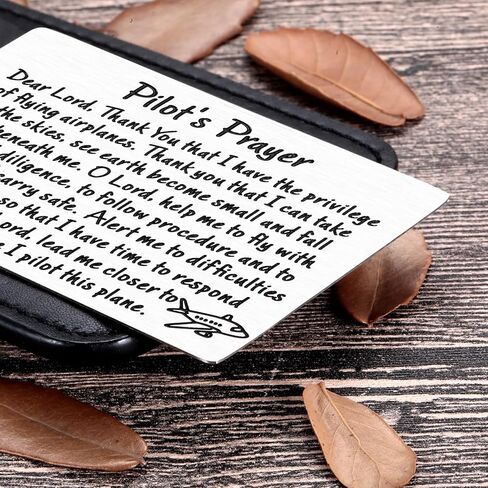 Pilot's Prayer
Dear Lord, Thank You that I have the privilege
of flying airplanes. Thank you that I can take
the skies, see earth become small and fall
beneath me. O Lord, help me to fly with
diligence, to follow procedure and to
carry safe. Alert me to difficulties
so that I have time to respond
Lord, lead me closer to
I pilot this plane.